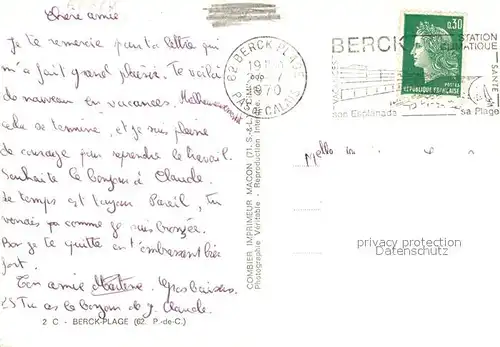 Chère amie
Je te remercie pour ta lettre qui
m'a fait grand plaisir. Te voilà
de nouveau en vacances. Malheureusement
cela se termine, et je suis pleine
de courage pour reprendre le travail.
Souhaite le bonjour à Claude.
Le temps est toujours Pareil, tu
verrais comme je suis bronzée.
Bon je te quitte en t'embrassant bien
fort.
Ton amie Martine. Gros baisers.
Tu as le bonjour de J. Claude.
2 C - BERCK-PLAGE (62. P.-de-C.)
COMBIER IMPRIMEUR MACON (71. S.-&-L.)
Photographie Véritable - Reproduction
62 BERCK-PLAGE
19
1970
PAS DE CALAIS
0,30
POSTES
REPUBLIQUE FRANÇAISE
BERCK
STATION
CLIMATIQUE
SANTÉ
son Esplanade
sa Plage
Melle
privacy protection
Datenschutz